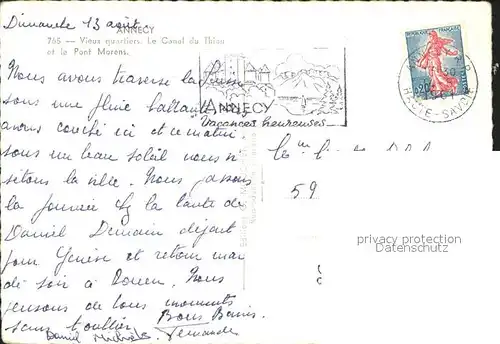 Dimanche 13 août
ANNECY
765 — Vieux quartiers. Le Canal du Thiou
et le Pont Morens.
Nous avons traversé la Suisse
sous une pluie battante, nous
avons couché ici et ce matin
sous un beau soleil nous vi
sitons la ville. Nous passons
la journée chez la tante de
Daniel Demain départ
pour Genève et retour mar
di soir à Rouen. Nous
pensons de tous moments
sans t'oublier Bons Baisers.
Daniel Michel Fernande
ANNECY
Vacances heureuses
REPUBLIQUE FRANÇAISE
HAUTE-SAVOIE
59
privacy protection
Datenschutz